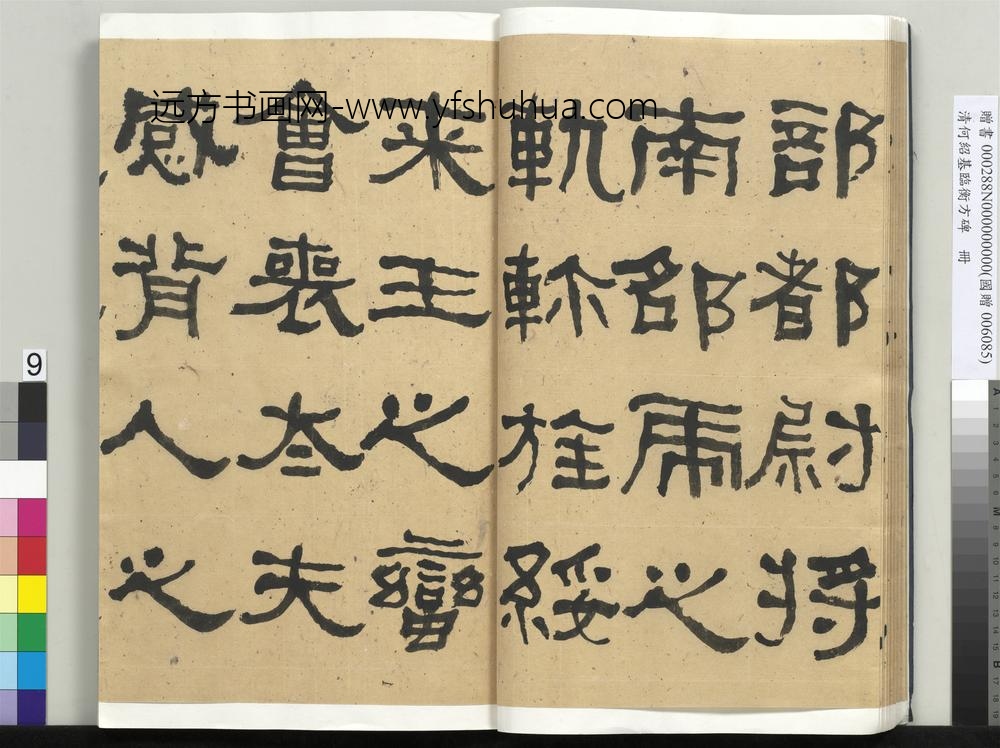 部都尉將
南邵虎之
軌軫旌綏
来王之蠻
會喪夳夫
感背人之
远方书画网-www.yfshuhua.com
贈書 000288N000000000(國贈 006085)
清何紹基臨衡方碑　冊
9